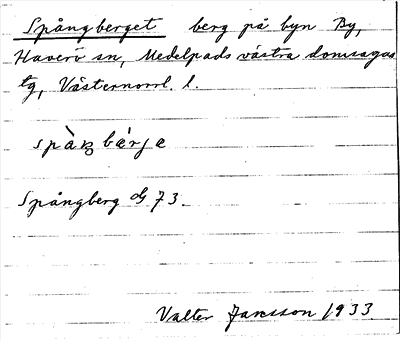 Spångberget berg på byn By,
Haverö sn, Medelpads västra domsagas
tg, Västernorrl. l.
Spångberg 73.
Valter Jansson 1933